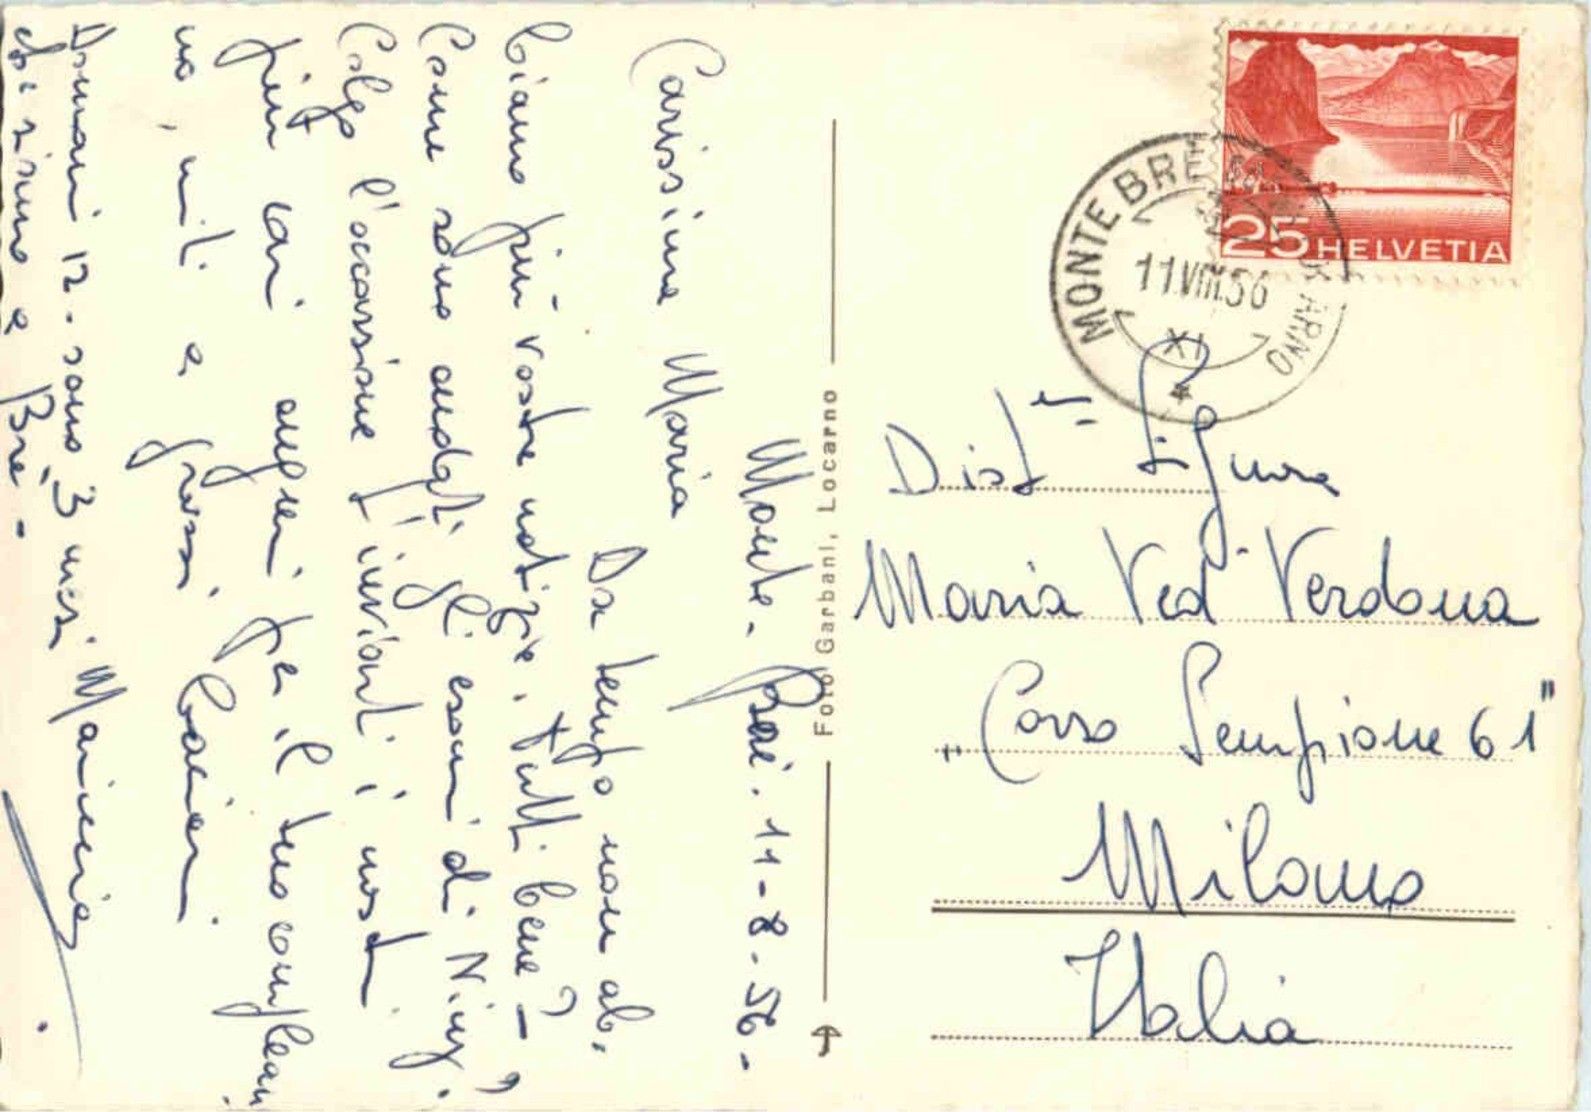 Monte. Brè. 11-8-56-
Carissima Maria
Da tempo non ab,
biamo più vostre notizie. tutti bene? -
Come sono andati gli esami di Niny. ?
Colgo l'occassione d'inviarti i nostri
più cari auguri per il tuo complean,
no, uniti a grossi bacioni.
Domani 12. sono 3 mesi
che siamo a Brè -
Marinia
Foto Garbani, Locarno
25 HELVETIA
MONTE BRÈ
11.VIII.56
XI
Dist ma Signora
Maria Ved Verdona
"Corso Sempione 61"
Milano
Italia